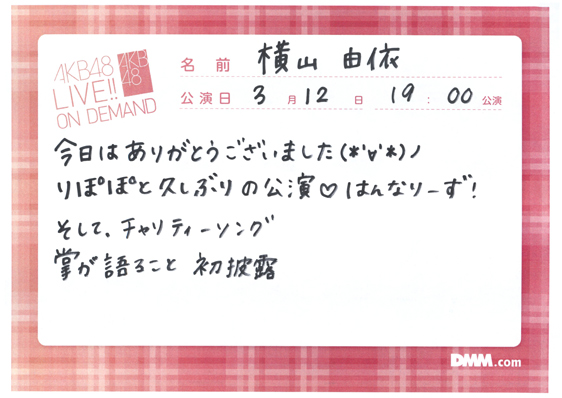 AKB48
LIVE!!
ON DEMAND
AKB
48
名前 横山 由依
公演日 3月12日 19:00公演
今日はありがとうございました(*'∀'*)ノ
りぽぽと久しぶりの公演♡はんなりーず!
そして、チャリティーソング
掌が語ること 初披露
DMM.com